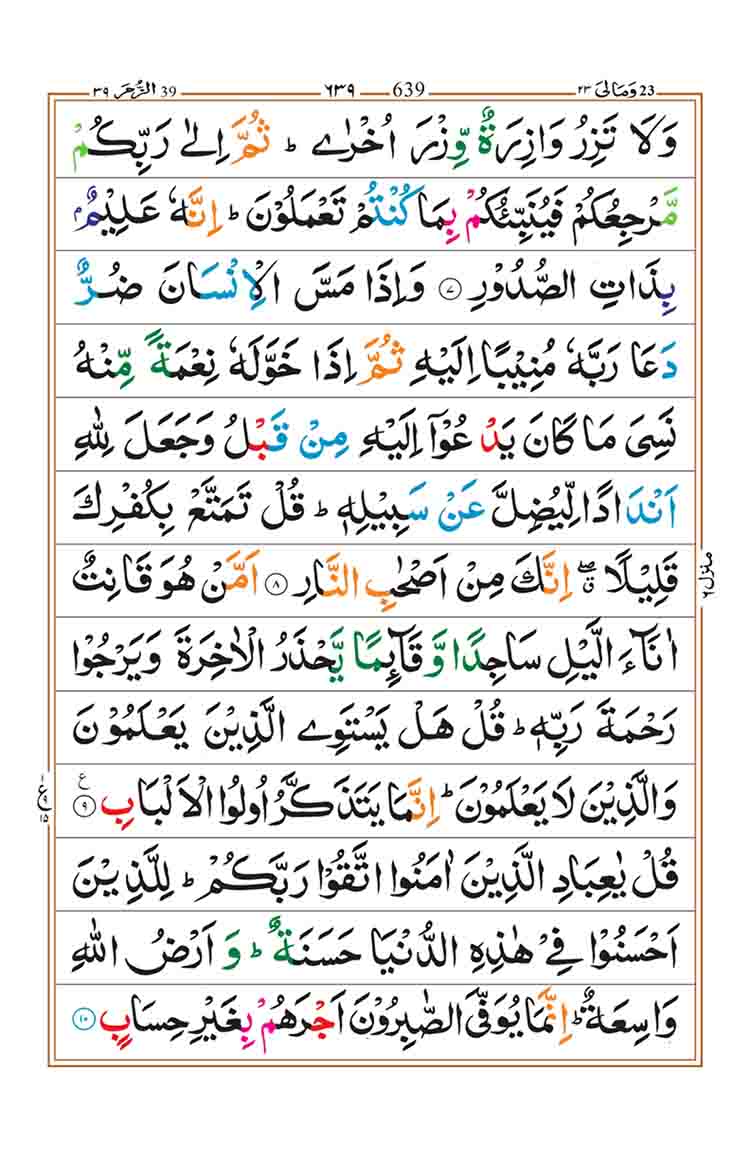 23 وَمَالِیَ ۲۳ 639 ۶۳۹ 39 الزُّمَر ۳۹
وَلَا تَزِرُ وَازِرَةٌ وِّزْرَ اُخْرٰى ؕ ثُمَّ اِلٰى رَبِّكُمْ
مَّرْجِعُكُمْ فَيُنَبِّئُكُمْ بِمَا كُنْتُمْ تَعْمَلُوْنَ ؕ اِنَّهٗ عَلِيْمٌۢ
بِذَاتِ الصُّدُوْرِ ۷ وَاِذَا مَسَّ الْاِنْسَانَ ضُرٌّ
دَعَا رَبَّهٗ مُنِيْبًا اِلَيْهِ ثُمَّ اِذَا خَوَّلَهٗ نِعْمَةً مِّنْهُ
نَسِىَ مَا كَانَ يَدْعُوْۤا اِلَيْهِ مِنْ قَبْلُ وَجَعَلَ لِلّٰهِ
اَنْدَادًا لِّيُضِلَّ عَنْ سَبِيْلِهٖ ؕ قُلْ تَمَتَّعْ بِكُفْرِكَ
قَلِيْلًا ۖ اِنَّكَ مِنْ اَصْحٰبِ النَّارِ ۸ اَمَّنْ هُوَ قَانِتٌ
اٰنَآءَ الَّيْلِ سَاجِدًا وَّقَآئِمًا يَّحْذَرُ الْاٰخِرَةَ وَيَرْجُوْا
رَحْمَةَ رَبِّهٖ ؕ قُلْ هَلْ يَسْتَوِى الَّذِيْنَ يَعْلَمُوْنَ
وَالَّذِيْنَ لَا يَعْلَمُوْنَ ؕ اِنَّمَا يَتَذَكَّرُ اُولُوا الْاَلْبَابِ ۹ ع
قُلْ يٰعِبَادِ الَّذِيْنَ اٰمَنُوا اتَّقُوْا رَبَّكُمْ ؕ لِلَّذِيْنَ
اَحْسَنُوْا فِىْ هٰذِهِ الدُّنْيَا حَسَنَةٌ ؕ وَاَرْضُ اللّٰهِ
وَاسِعَةٌ ؕ اِنَّمَا يُوَفَّى الصّٰبِرُوْنَ اَجْرَهُمْ بِغَيْرِ حِسَابٍ ۱۰
منزل ۶
ع ۹ ۱۵